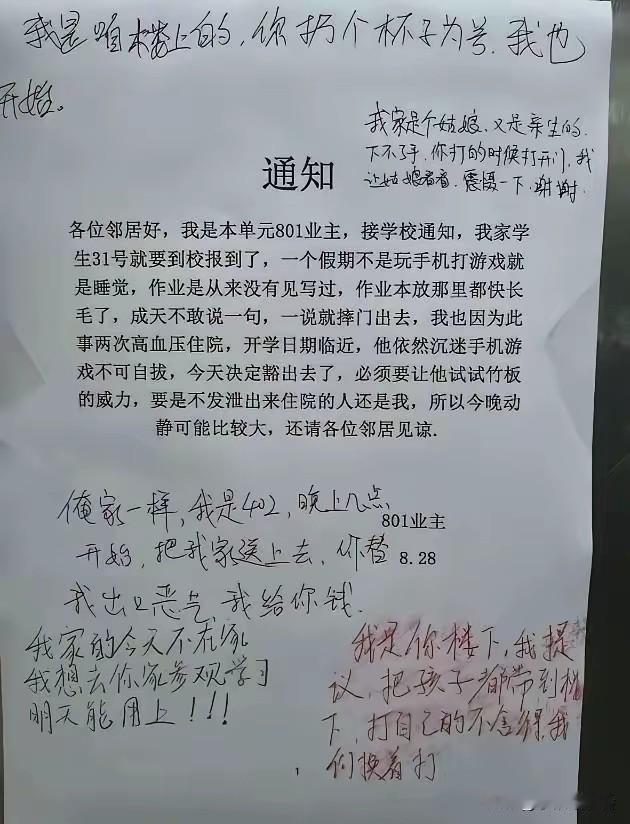 我是咱楼上的，你扔个杯子为号，我也
开始。
我家是个姑娘，又是亲生的，
下不了手，你打的时候打开门，我
让姑娘看看，震慑一下，谢谢，
通知
各位邻居好，我是本单元801业主，接学校通知，我家学
生31号就要到校报到了，一个假期不是玩手机打游戏就
是睡觉，作业是从来没有见写过，作业本放那里都快长
毛了，成天不敢说一句，一说就摔门出去，我也因为此
事两次高血压住院，开学日期临近，他依然沉迷手机游
戏不可自拔，今天决定豁出去了，必须要让他试试竹板
的威力，要是不发泄出来住院的人还是我，所以今晚动
静可能比较大，还请各位邻居见谅.
801业主
8.28
俺家一样，我是402，晚上几点
开始，把我家送上去，你替
我出口恶气，我给你钱.
我家的今天不在家
我想去你家参观学习
明天能用上！！！
我是你楼下，我提
议，把孩子都带到楼
下，打自己的不舍得，我
们换着打
1